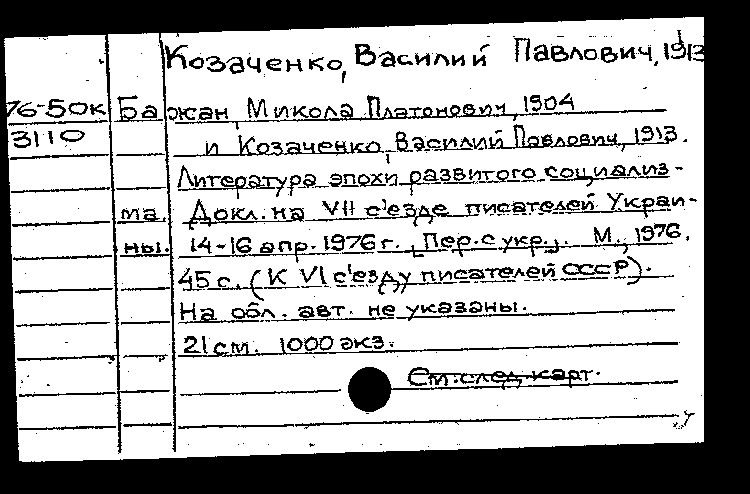 Козаченко, Василий Павлович, 1913
76-50к Бажан, Микола Платонович, 1904
3110 и Козаченко, Василий Павлович, 1913.
Литература эпохи развитого социализ-
ма. Докл. на VII с'езде писателей Украи-
ны. 14-16 апр. 1976 г. [Пер. с укр.]. М., 1976.
45 с. (К VI с'езду писателей СССР).
На обл. авт. не указаны.
21 см. 1000 экз.
См. след. карт.